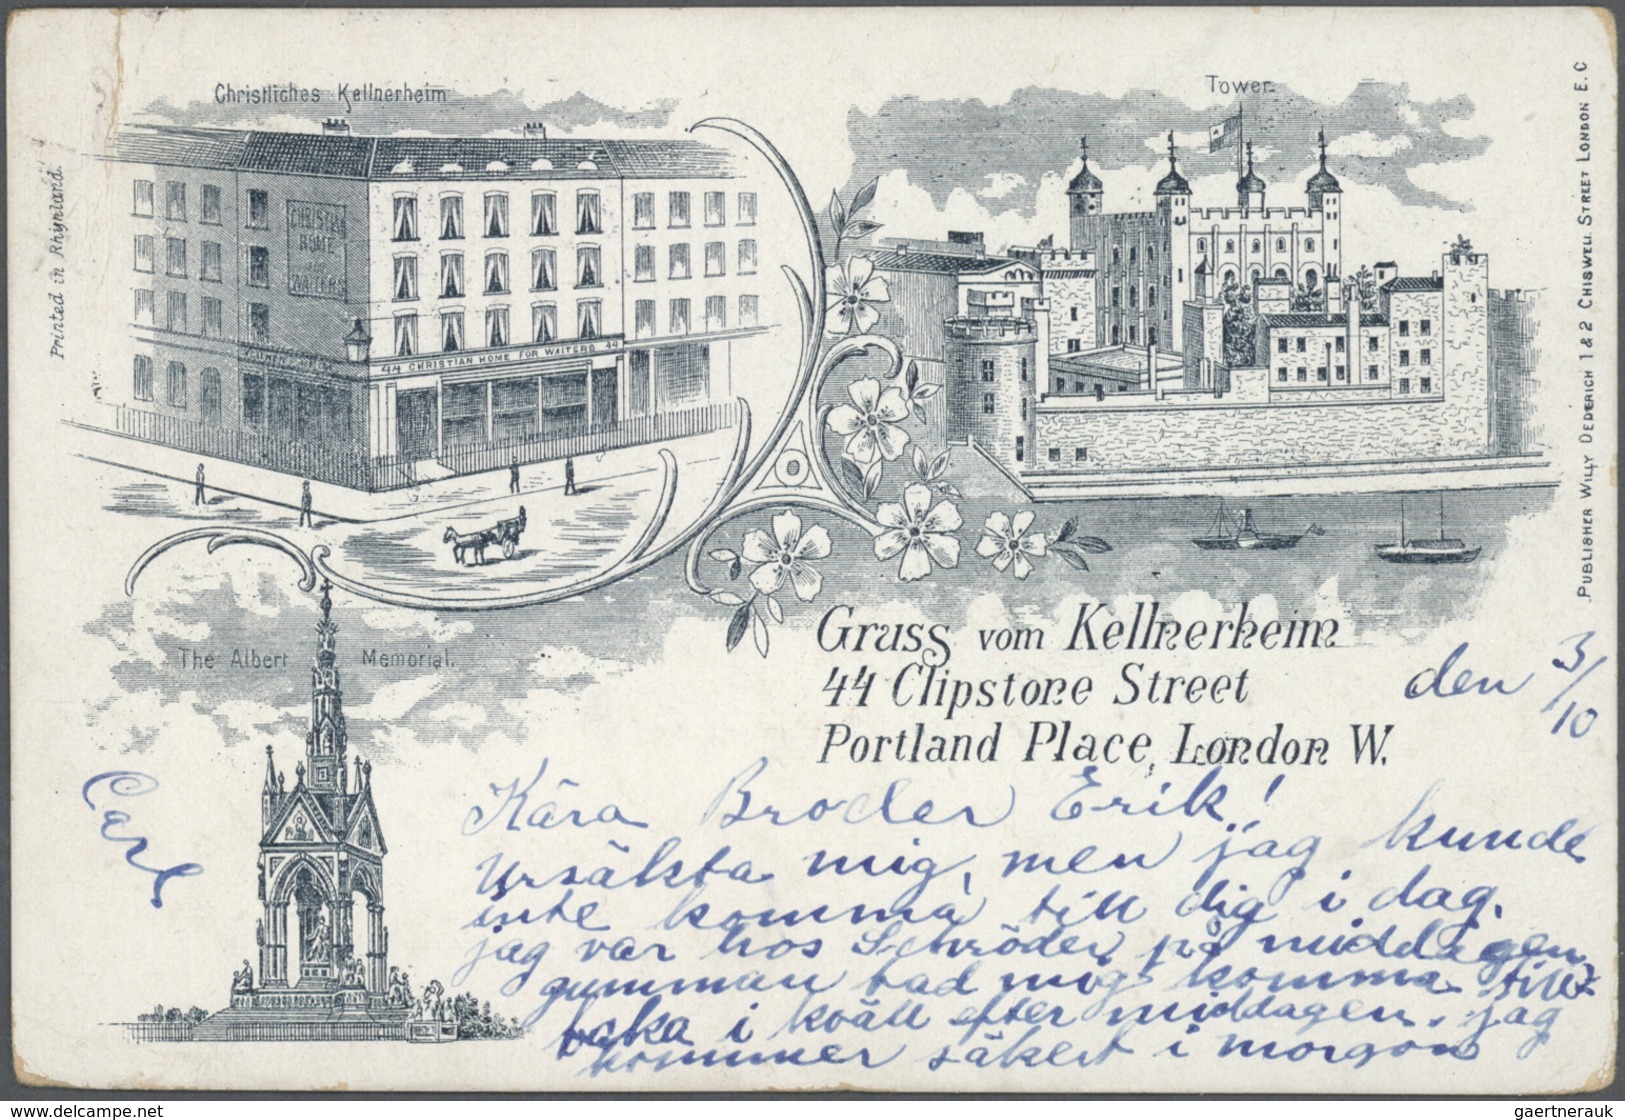 Christliches Kellnerheim
Tower.
Printed in Rhijnland.
PUBLISHER WILLY DEDERICH 1 & 2 CHISWELL STREET LONDON E.C
CHRISTIAN
HOME
FOR
WAITERS
44 CHRISTIAN HOME FOR WAITERS 44
The Albert Memorial.
Gruss vom Kellnerheim
44 Clipstone Street
Portland Place, London W.
den 3/10
Carl
Kära Broder Erik!
Ursäkta mig, men jag kunde
inte komma till dig i dag.
jag var hos Schröder på middagen
gumman bad mig komma till-
baka i kväll efter middagen. jag
kommer säkert i morgon
www.delcampe.net
gaertnerauk